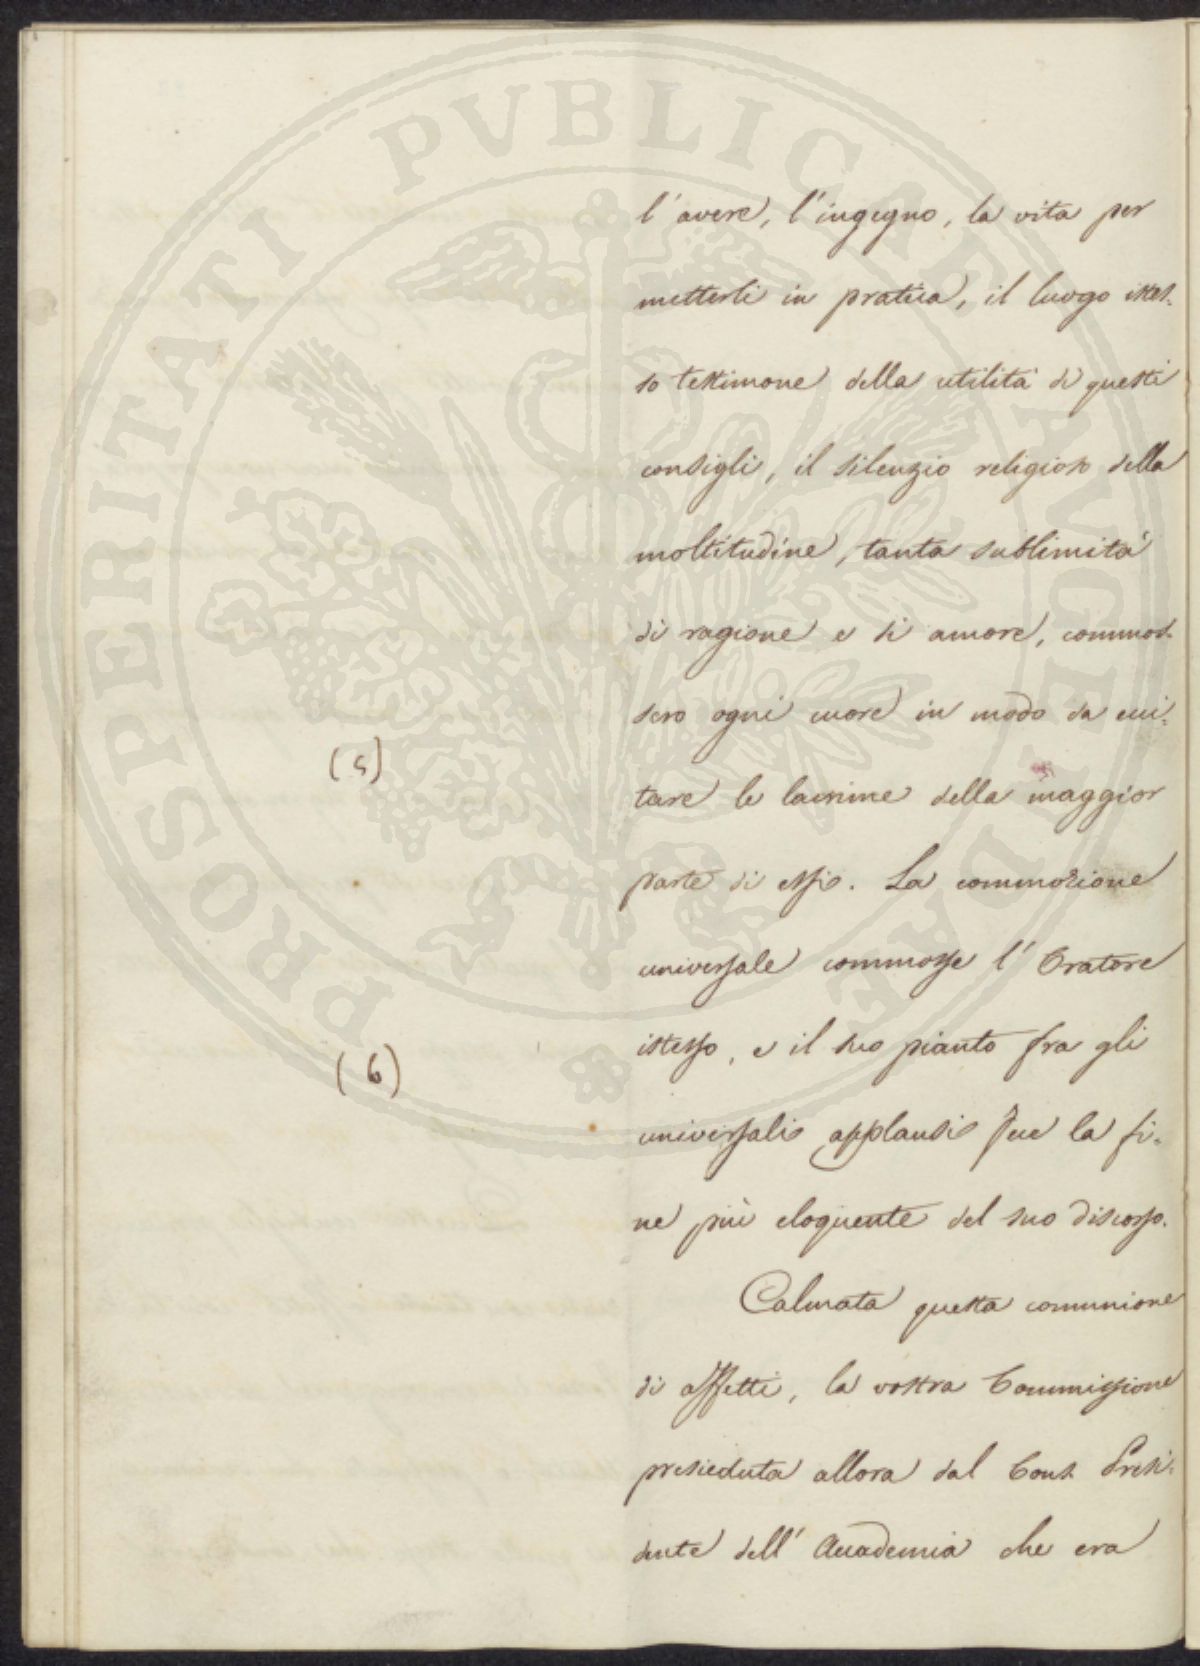 PROSPERITATI PVBLICAE AVGENDAE
l'avere, l'ingegno, la vita per
metterli in pratica, il luogo istes-
so testimone della utilità di questi
consigli, il silenzio religioso della
moltitudine, tanta sublimità
di ragione e di amore, commos-
sero ogni cuore in modo da ecci-
(5)
tare le lacrime della maggior
parte di essi. La commozione
universale commosse l'Oratore
istesso, e il suo pianto fra gli
(6)
universali applausi fue la fi-
ne più eloquente del suo discorso.
Calmata questa comunione
di affetti, la vostra Commissione
presieduta allora dal Presi-
dente dell'Accademia che era